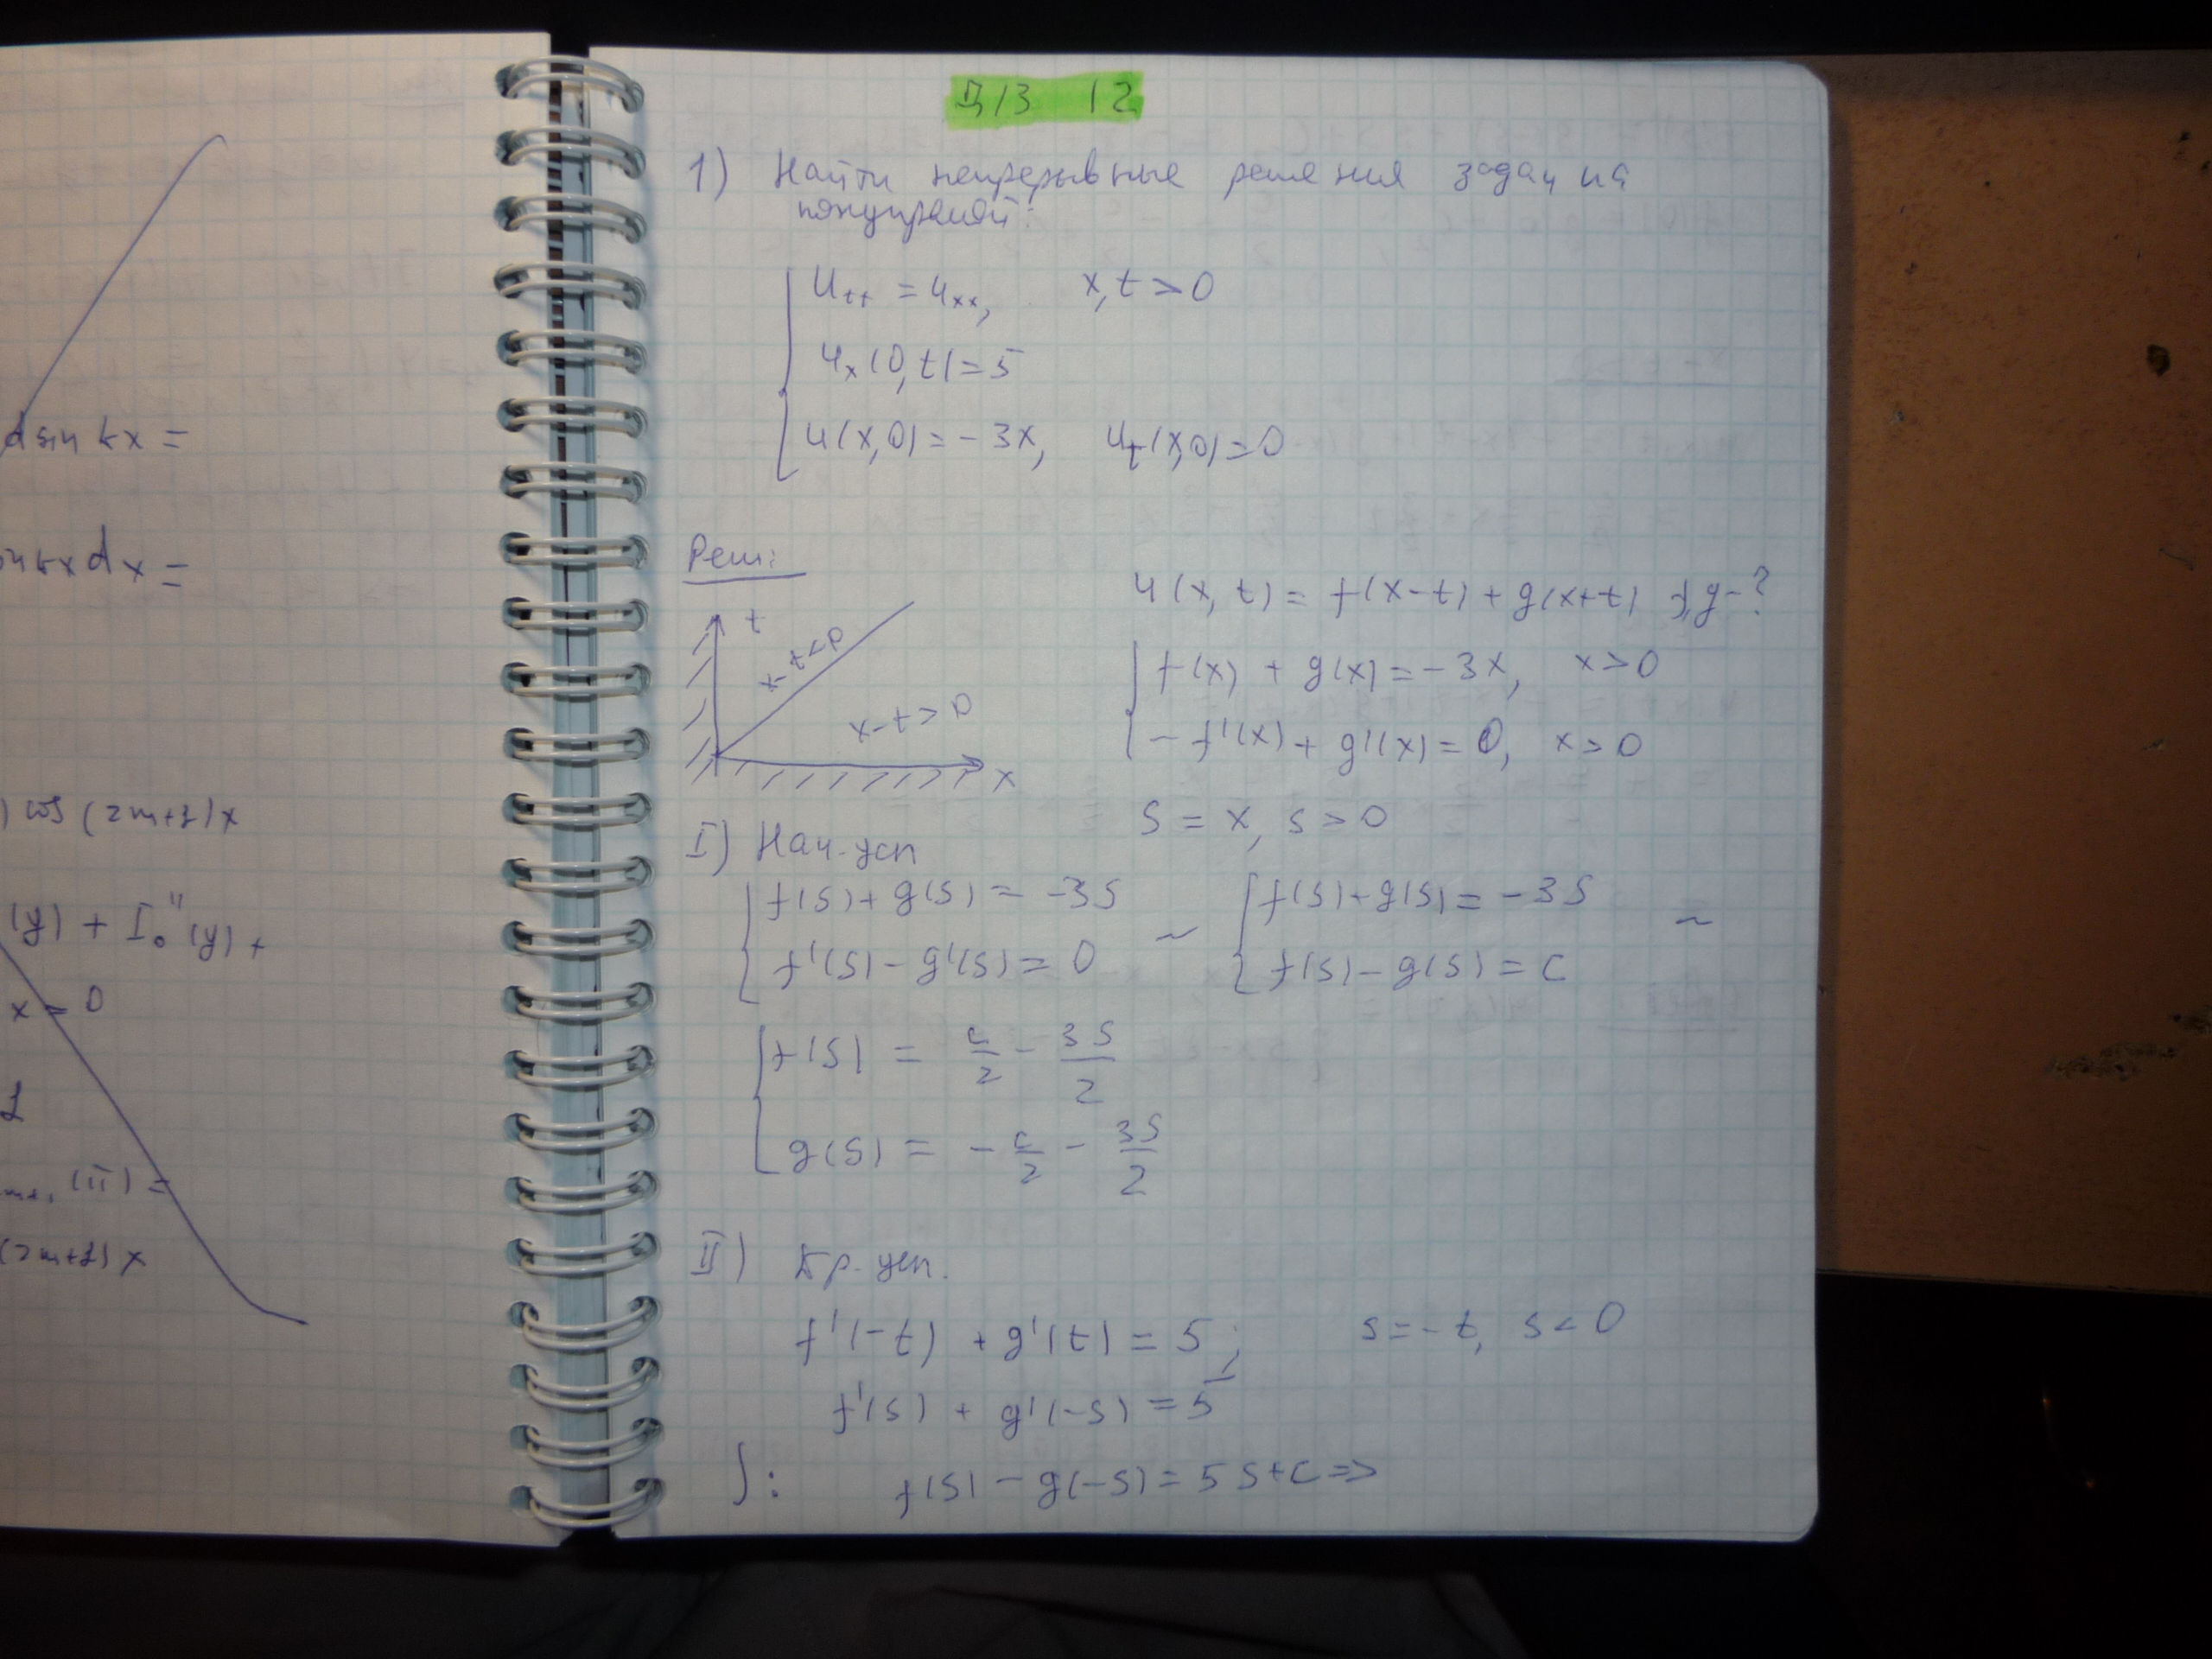 d sin kx =
sin kx dx =
) cos (2m+1)x
(y) + I₀''(y) +
x = 0
1
(π) =
(2m+1)x
Д/З 12
1) Найти непрерывные решения задач на
полупрямой:
u_tt = u_xx, x, t > 0
u_x(0, t) = 5
u(x, 0) = -3x, u_t(x, 0) = 0
Реш:
u(x, t) = f(x-t) + g(x+t) f, g - ?
t
x-t<0
f(x) + g(x) = -3x, x > 0
x-t>0
-f'(x) + g'(x) = 0, x > 0
x
s = x, s > 0
I) Нач. усл
f(s) + g(s) = -3s ~ f(s) + g(s) = -3s ~
f'(s) - g'(s) = 0 f(s) - g(s) = c
f(s) = c/2 - 3s/2
g(s) = -c/2 - 3s/2
II) Кр. усл.
f'(-t) + g'(t) = 5; s = -t, s < 0
f'(s) + g'(-s) = 5
∫: f(s) - g(-s) = 5s + c =>